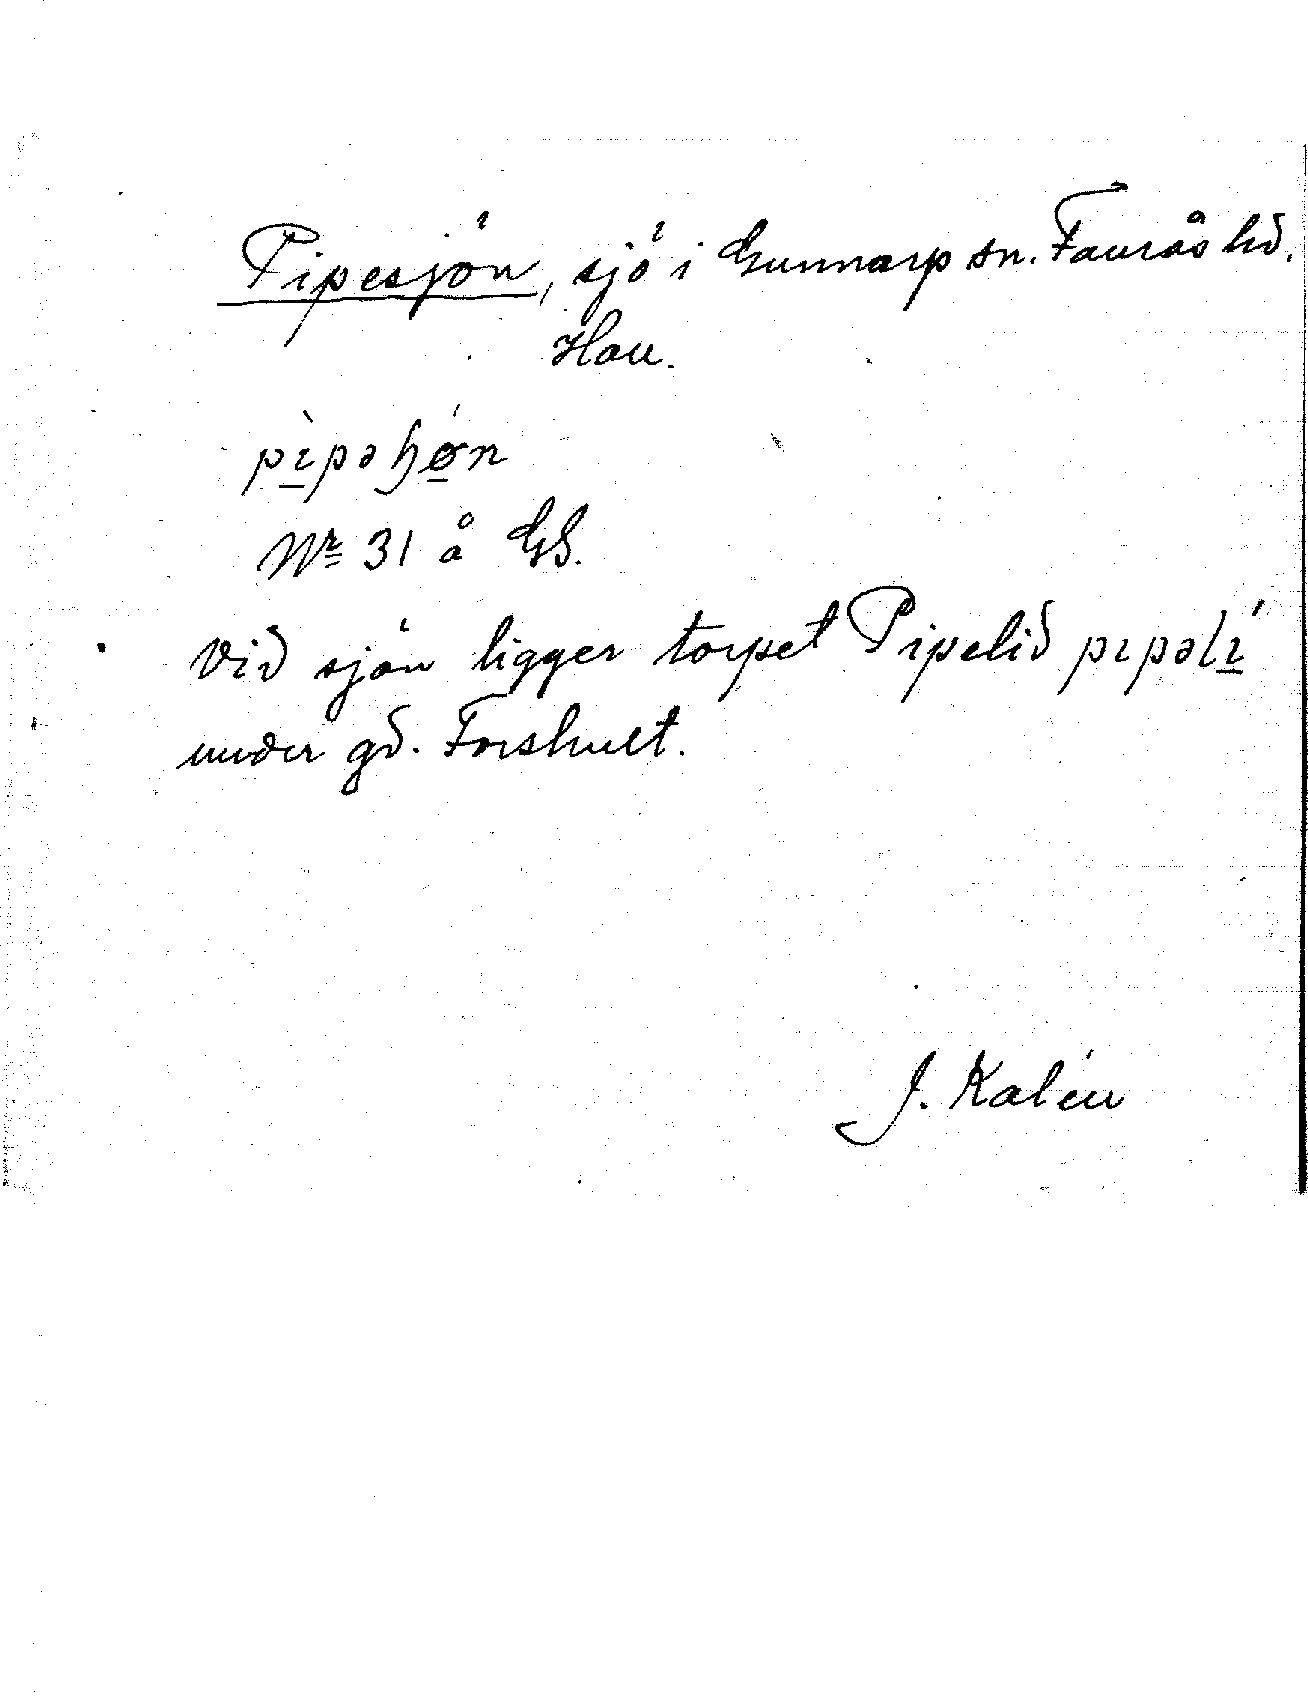 Pipesjön, sjö i Gunnarp sn. Faurås hd.
Hall.
pìpəɧǿn
Nr 31 å GS.
Vid sjön ligger torpet Pipelid pɪpəlɪ́
under gd. Forshult.
J. Kalén